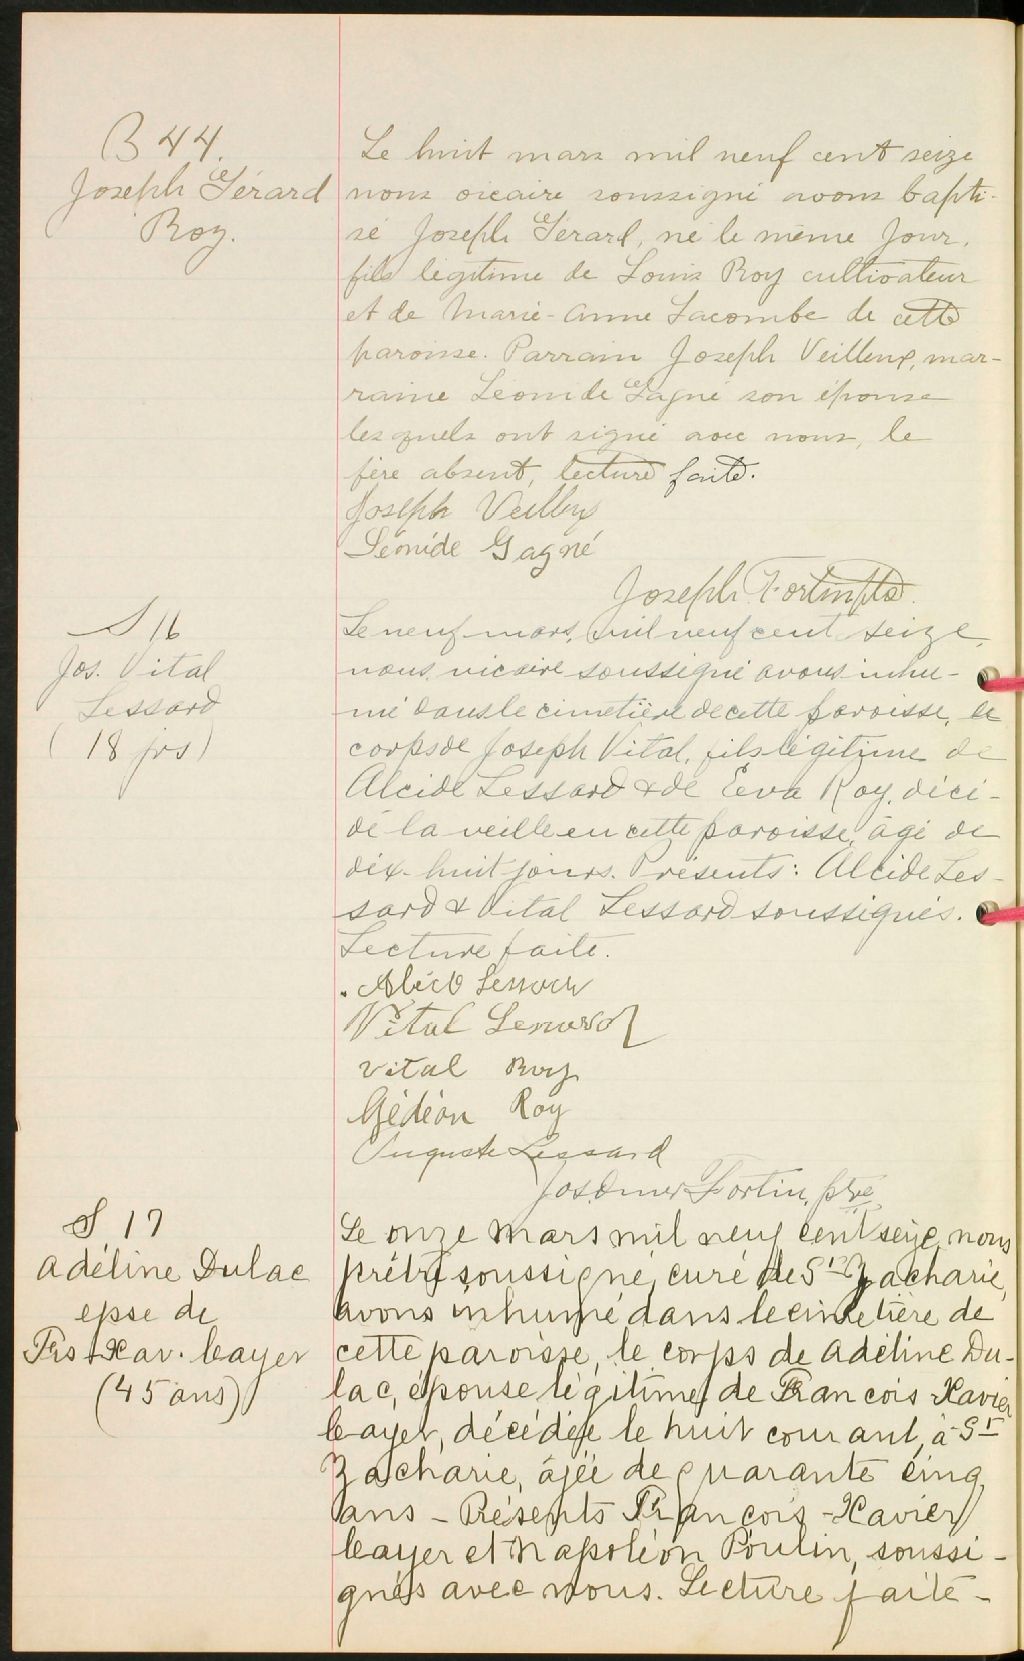 B 44.
Joseph Gérard
Roy.
Le huit mars mil neuf cent seize
nous vicaire soussigné avons bapti-
sé Joseph Gérard, né le même jour,
fils légitime de Louis Roy cultivateur
et de Marie-Anne Lacombe de cette
paroisse. Parrain Joseph Veilleux, mar-
raine Léonide Gagné son épouse
lesquels ont signé avec nous, le
père absent, lecture faite.
Joseph Veilleux
Léonide Gagné
Joseph Fortin ptre.
S 16
Jos. Vital
Lessard
(18 jrs)
Le neuf mars, mil neuf cent seize,
nous, vicaire soussigné avons inhu-
mé dans le cimetière de cette paroisse, le
corps de Joseph Vital, fils légitime de
Alcide Lessard & de Eeva Roy, décé-
dé la veille en cette paroisse, âgé de
dix-huit jours. Présents: Alcide Les-
sard & Vital Lessard soussignés.
Lecture faite.
Lessard
Vital Lessard
Vital Roy
Gédéon Roy
Auguste Lessard
Jos. Omer Fortin, ptre
S 17
Adéline Dulac
epse de
Frs-Xav. Cayer
(45 ans)
Le onze mars mil neuf cent seize, nous
prêtre soussigné, curé de St Zacharie,
avons inhumé dans le cimetière de
cette paroisse, le corps de Adéline Du-
lac, épouse légitime de François-Xavier
Cayer, décédée le huit courant, à St
Zacharie, âgée de quarante cinq
ans - Présents François-Xavier
Cayer et Napoléon Poulin, soussi-
gnés avec nous. Lecture faite -